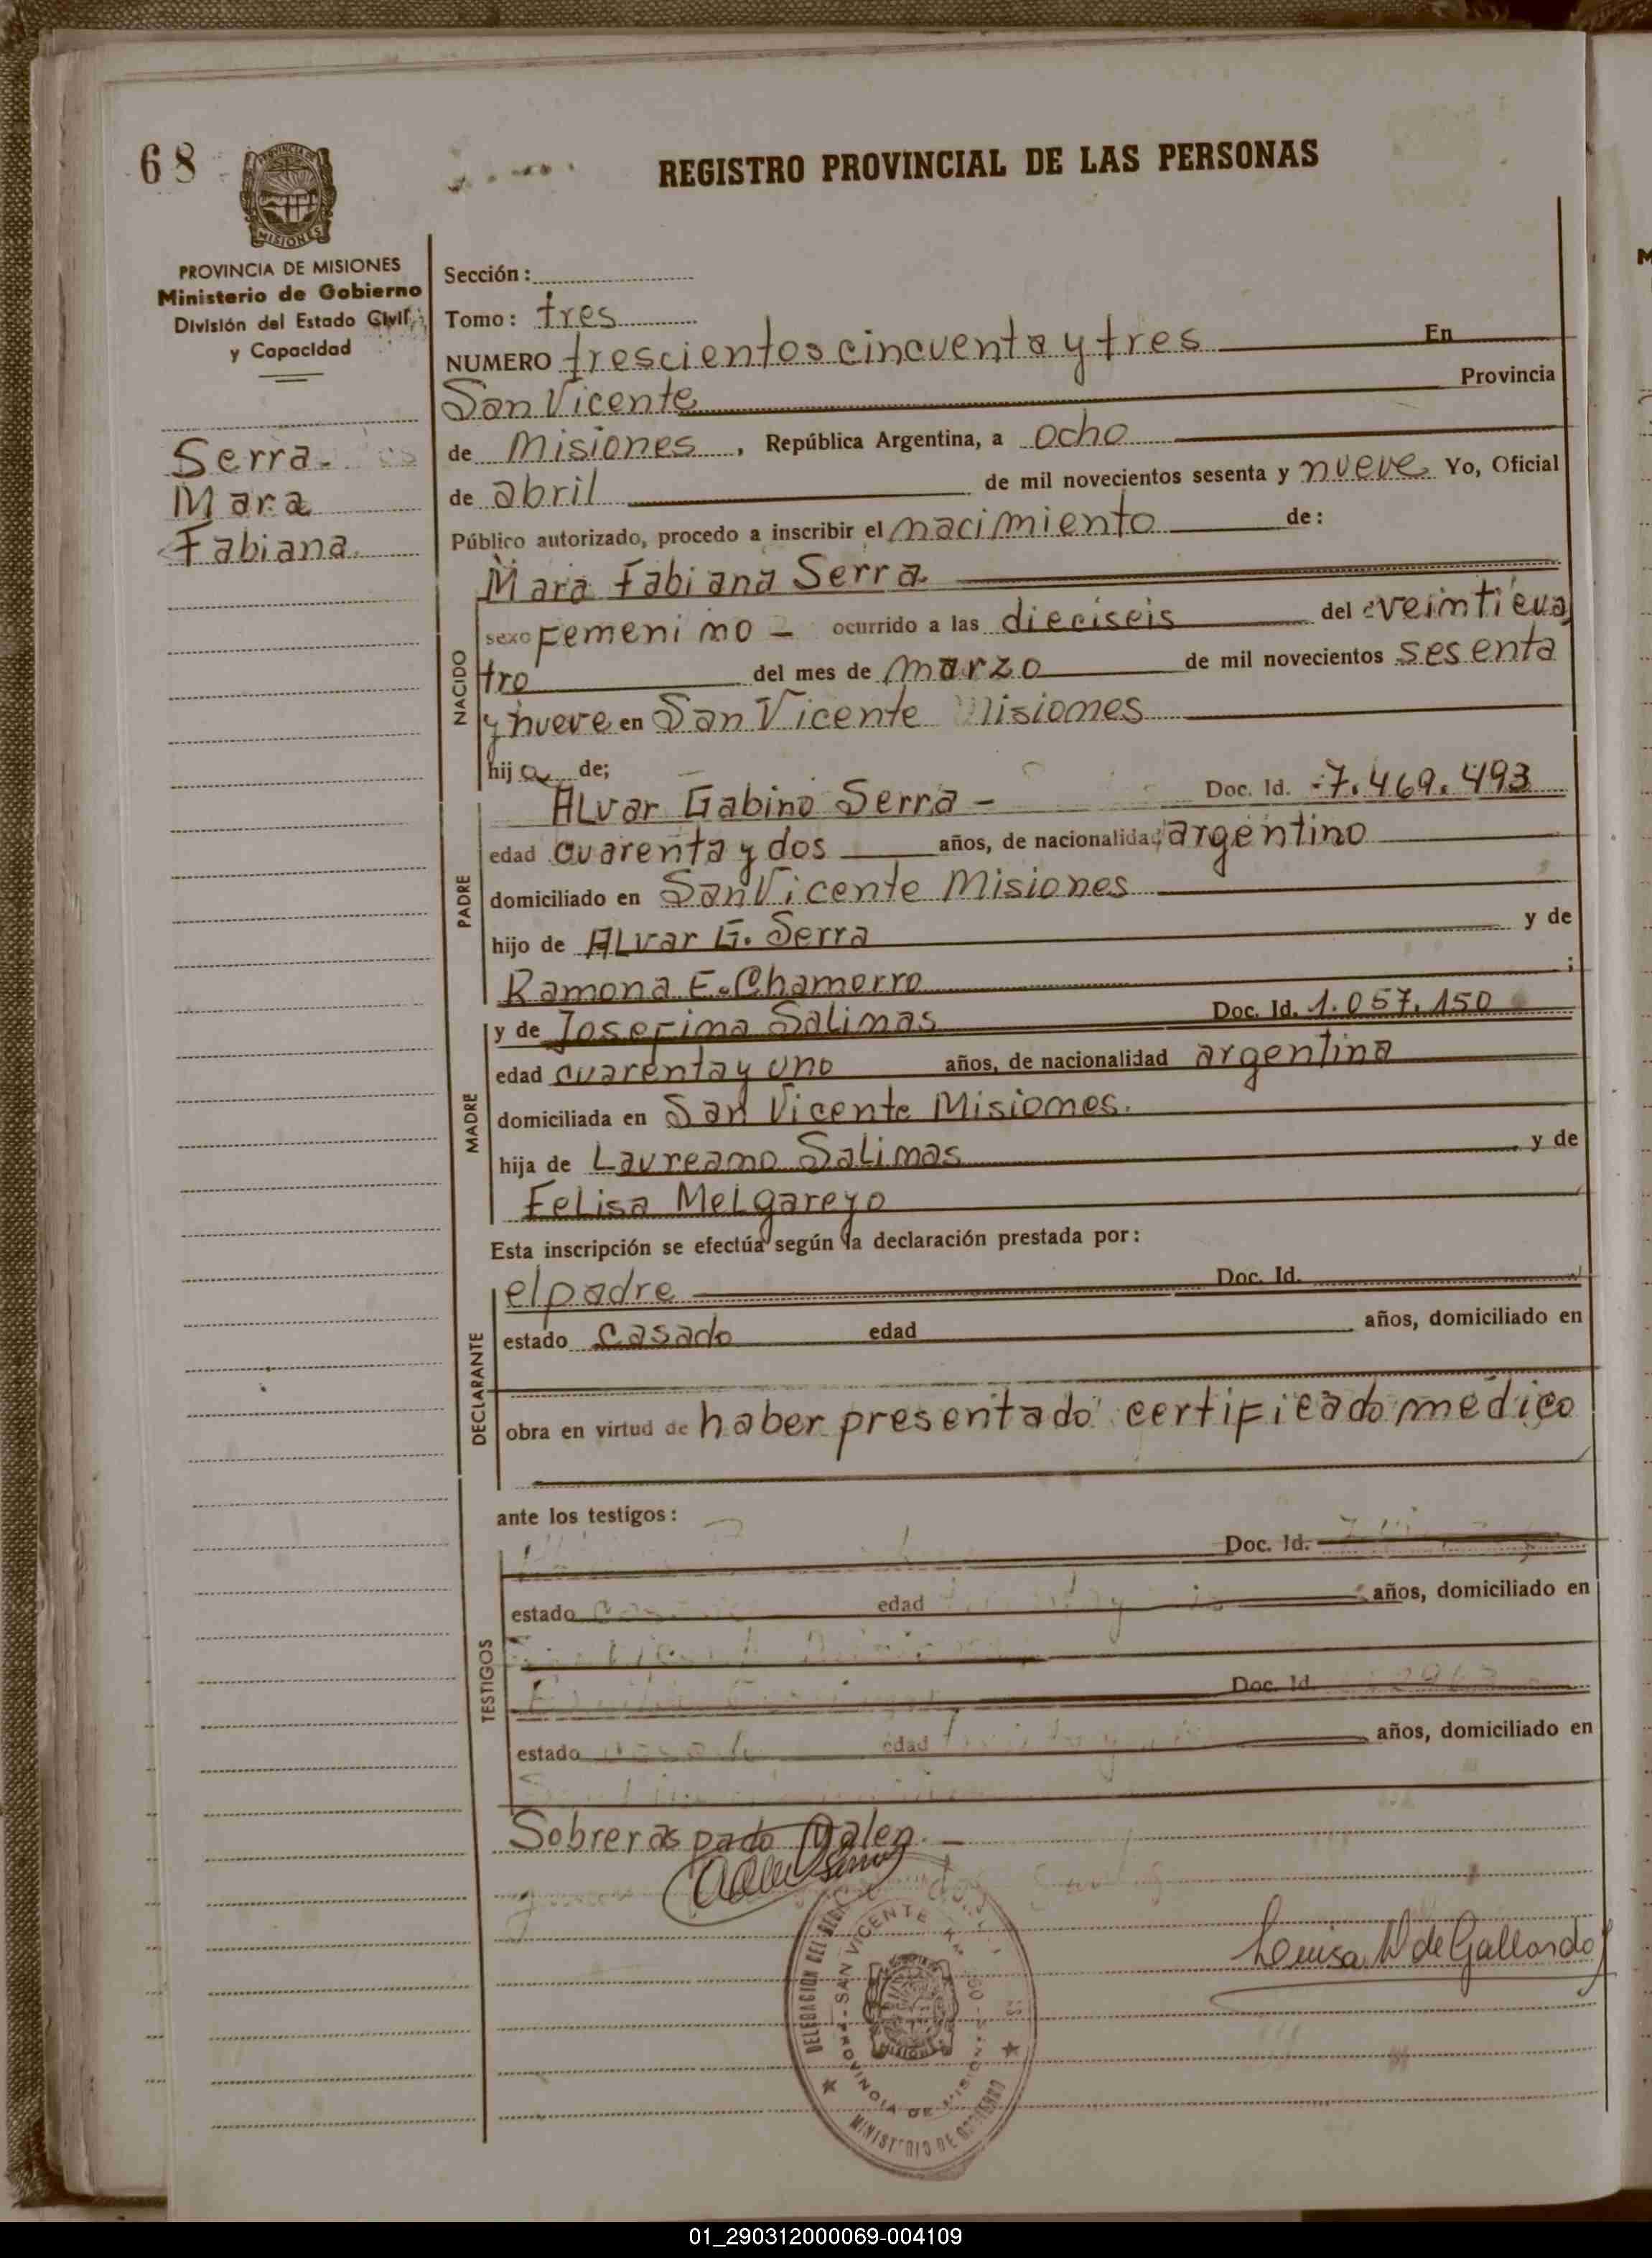 68
REGISTRO PROVINCIAL DE LAS PERSONAS
PROVINCIA DE
MISIONES
PROVINCIA DE MISIONES
Ministerio de Gobierno
División del Estado Civil
y Capacidad
Serra.
Mara
Fabiana.
Sección:
Tomo: tres
NUMERO trescientos cincuenta y tres En
San Vicente Provincia
de Misiones, República Argentina, a ocho
de abril de mil novecientos sesenta y nueve Yo, Oficial
Público autorizado, procedo a inscribir el nacimiento de:
Mara Fabiana Serra
NACIDO
sexo Femenino - ocurrido a las dieciseis del veinticua
tro del mes de marzo de mil novecientos sesenta
y nueve en San Vicente Misiones
hija de;
PADRE
ALvar Gabino Serra - Doc. Id. 7.469.493
edad cuarenta y dos años, de nacionalidad argentino
domiciliado en San Vicente Misiones
hijo de ALvar G. Serra y de
Ramona E. Chamorro;
MADRE
y de Josefina Salinas Doc. Id. 1.057.150
edad cuarenta y uno años, de nacionalidad argentina
domiciliada en San Vicente Misiones.
hija de Laureano Salinas y de
FeLisa MeLgareyo
Esta inscripción se efectúa según la declaración prestada por:
DECLARANTE
el padre Doc. Id.
estado casado edad años, domiciliado en
obra en virtud de haber presentado certificado medico
ante los testigos:
TESTIGOS
Doc. Id.
estado edad años, domiciliado en
Doc. Id.
estado edad años, domiciliado en
Sobreraspado Valen. -
Louisa W de Gallardo
DELEGACION DEL
SAN VICENTE
PROVINCIA DE MISIONES
MINISTERIO DE GOBIERNO
01_290312000069-004109